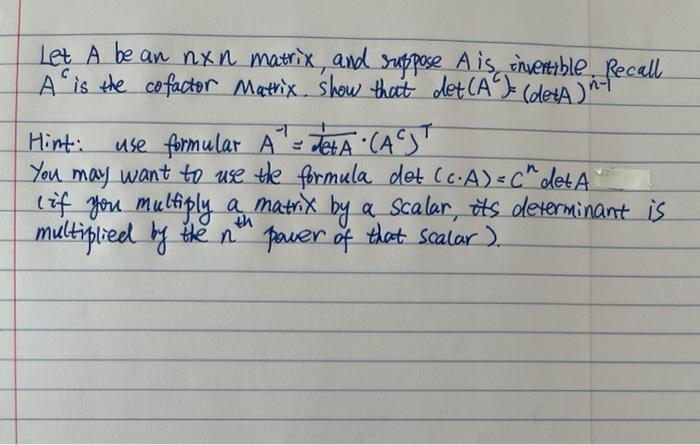 Let A be an n×n matrix, and suppose A is invertible. Recall
Aᶜ is the cofactor Matrix. Show that det(Aᶜ)=(detA)ⁿ⁻¹
Hint: use formular A⁻¹ = 1/detA · (Aᶜ)ᵀ
You may want to use the formula det (c·A)=Cⁿ detA
(if you multiply a matrix by a scalar, its determinant is
multiplied by the nᵗʰ power of that scalar).